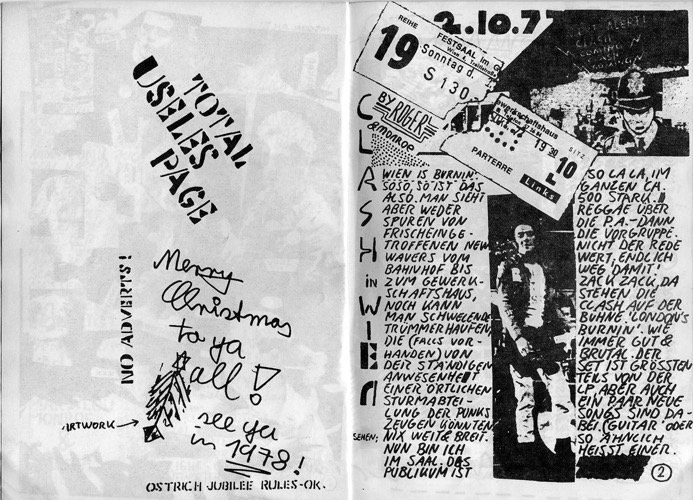 TOTAL
USELES
PAGE
NO ADVERTS!
Merry
Christmas
to ya
all!
see ya
in 1978!
ARTWORK
OSTRICH JUBILEE RULES-OK.
2.10.7
REIHE
19
FESTSAAL im G
Wien 4, Treitlstraße
Sonntag d.
S 130.
BY ROGER
& monroe
ewerkschaftshaus
19 30
SITZ
10
L
PARTERRE
Links
CLASH in WIEN
WIEN IS BURNIN'.
SOSO, SO IST DAS
ALSO. MAN SIEHT
ABER WEDER
SPUREN VON
FRISCHEINGE-
TROFFENEN NEW
WAVERS VOM
BAHNHOF BIS
ZUM GEWERK-
SCHAFTSHAUS,
NOCH KANN
MAN SCHWELENDE
TRÜMMERHAUFEN
DIE (FALLS VOR-
HANDEN) VON
DER STÄNDIGEN
ANWESENHEIT
EINER ÖRTLICHEN
STURMABTEI-
LUNG DER PUNKS
ZEUGEN KÖNNTEN
SEHEN; NIX WEIT & BREIT.
NUN BIN ICH
IM SAAL. DAS
PUBLIKUM IST
SO LA LA, IM
GANZEN CA.
500 STARK.
REGGAE ÜBER
DIE P.A.- DANN
DIE VORGRUPPE.
NICHT DER REDE
WERT, ENDLICH
WEG DAMIT!
ZACK ZACK, DA
STEHEN DIE
CLASH AUF DER
BÜHNE. 'LONDON'S
BURNIN'. WIE
IMMER GUT &
BRUTAL. DER
SET IST GRÖSSTEN
TEILS VON DER
LP. ABER AUCH
EIN PAAR NEUE
SONGS SIND DA-
BEI. (GUITAR ODER
SO ÄHNLICH
HEISST EINER.
2